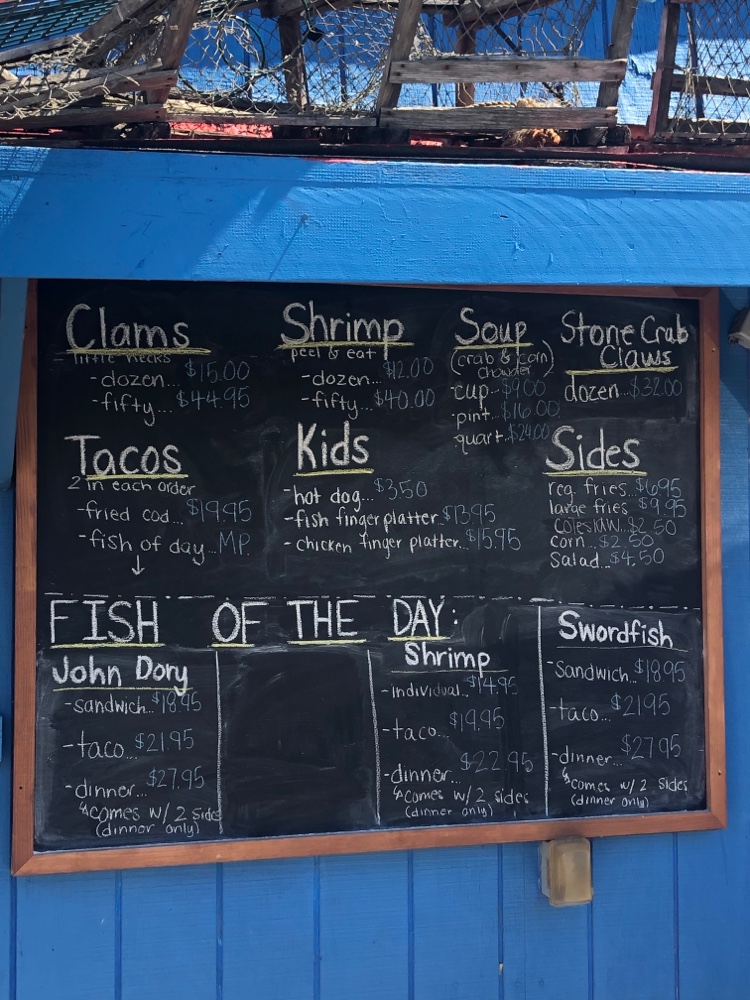 Clams
little necks
- dozen... $15.00
- fifty... $44.95
Shrimp
peel & eat
- dozen... $12.00
- fifty... $40.00
Soup
(crab & corn)
chowder
- cup... $9.00
- pint... $16.00
- quart... $24.00
Stone Crab
Claws
dozen... $32.00
Tacos
2 in each order
- fried cod... $19.95
- fish of day... MP.
Kids
- hot dog... $3.50
- fish finger platter.. $13.95
- chicken finger platter... $15.95
Sides
reg. fries... $6.95
large fries $9.95
coleslaw.. $2.50
corn... $2.50
Salad... $4.50
FISH OF THE DAY:
John Dory
- sandwich... $18.95
- taco... $21.95
- dinner... $27.95
↳ comes w/ 2 sides
(dinner only)
Shrimp
- individual... $14.95
- taco... $19.95
- dinner... $22.95
↳ comes w/ 2 sides
(dinner only)
Swordfish
- Sandwich... $18.95
- taco... $21.95
- dinner... $27.95
↳ comes w/ 2 sides
(dinner only)